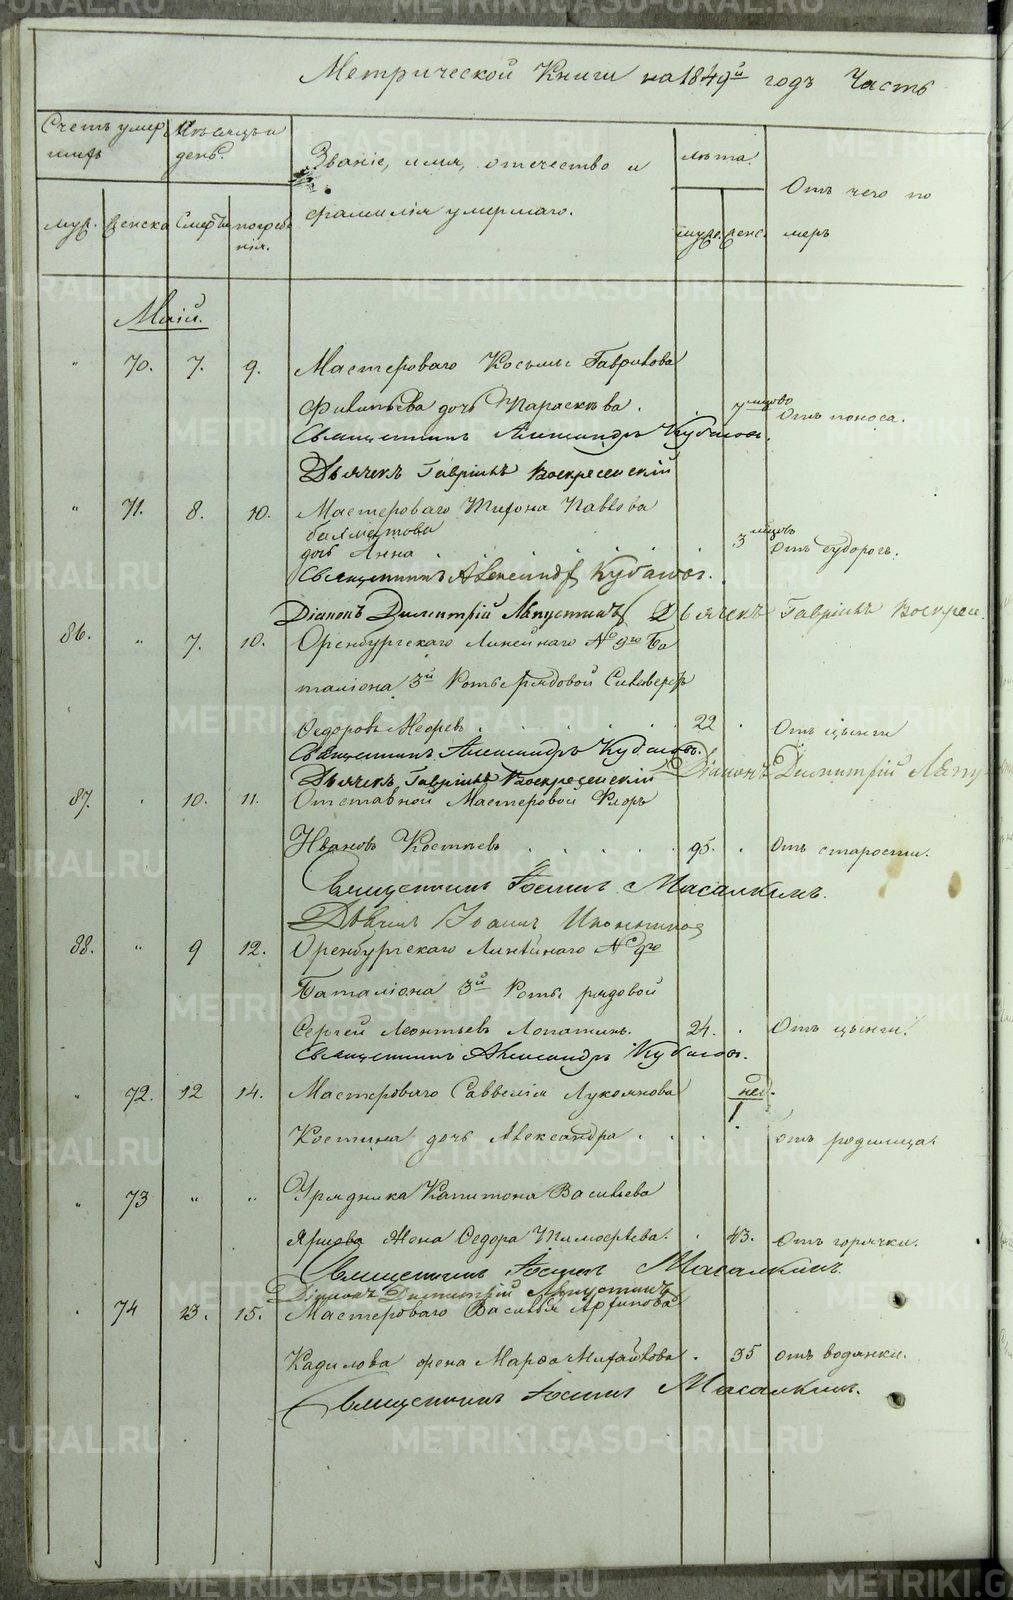 METRIKI.GASO-URAL.RU
Метрической Книги на 1849й годъ Часть
Счетъ умер
шихъ
Мѣсяцъ и
день.
Званіе, имя, отчество и
фамилія умершаго.
лѣта.
Отъ чего по
меръ
муж. Женска Смерти погребе
нія.
муж. женс.
Маій.
" 70. 7. 9. Мастероваго Косьмы Гаврилова
Филипьева дочь Параскева. 7 мцовъ Отъ поноса.
Священникъ Александръ Кубасовъ.
Дьячекъ Гавріилъ Воскресенскій
" 71. 8. 10. Мастероваго Тифона Павлова
дочь Анна . . . . . 3 мцовъ Отъ судорогъ.
Священникъ Александръ Кубасовъ.
Діаконъ Димитрій Ляпустинъ Дьячекъ Гавріилъ Воскресен
86. " 7. 10. Оренбургскаго Линейнаго № 9го Ба
таліона 3й Роты Рядовой Сильверстъ
Федоровъ . . . . . 22 . Отъ цынги
Священникъ Александръ Кубасовъ.
Дьячекъ Гавріилъ Воскресенскій Діаконъ Димитрій Ляпу
87. " 10. 11. Отставной Мастеровой Флоръ
Ивановъ Костинъ . . . . . 95. . Отъ старости.
Священникъ Іосифъ Масалкинъ.
Іоаннъ
88. " 9 12. Оренбургскаго Линѣйнаго № 9го
Баталіона 3й Роты рядовой
Сергей Леонтьевъ Лопатинъ. 24. . Отъ цынги.
Священникъ Александръ Кубасовъ.
" 72. 12 14. Мастероваго Савелія Лукоянова нед.
Костина дочь Александра . . . . 1 отъ родимца.
" 73 " " Урядника Капитона Васильева
Жена Федора Тимофѣева. . 43. Отъ горячки.
Священникъ Іосифъ Масалкинъ.
Діаконъ Димитрій Ляпустинъ
" 74 13. 15. Мастероваго Василья Архипова
Кадилова жена Марѳа Михайлова . . 35 отъ водянки.
Священникъ Іосифъ Масалкинъ.